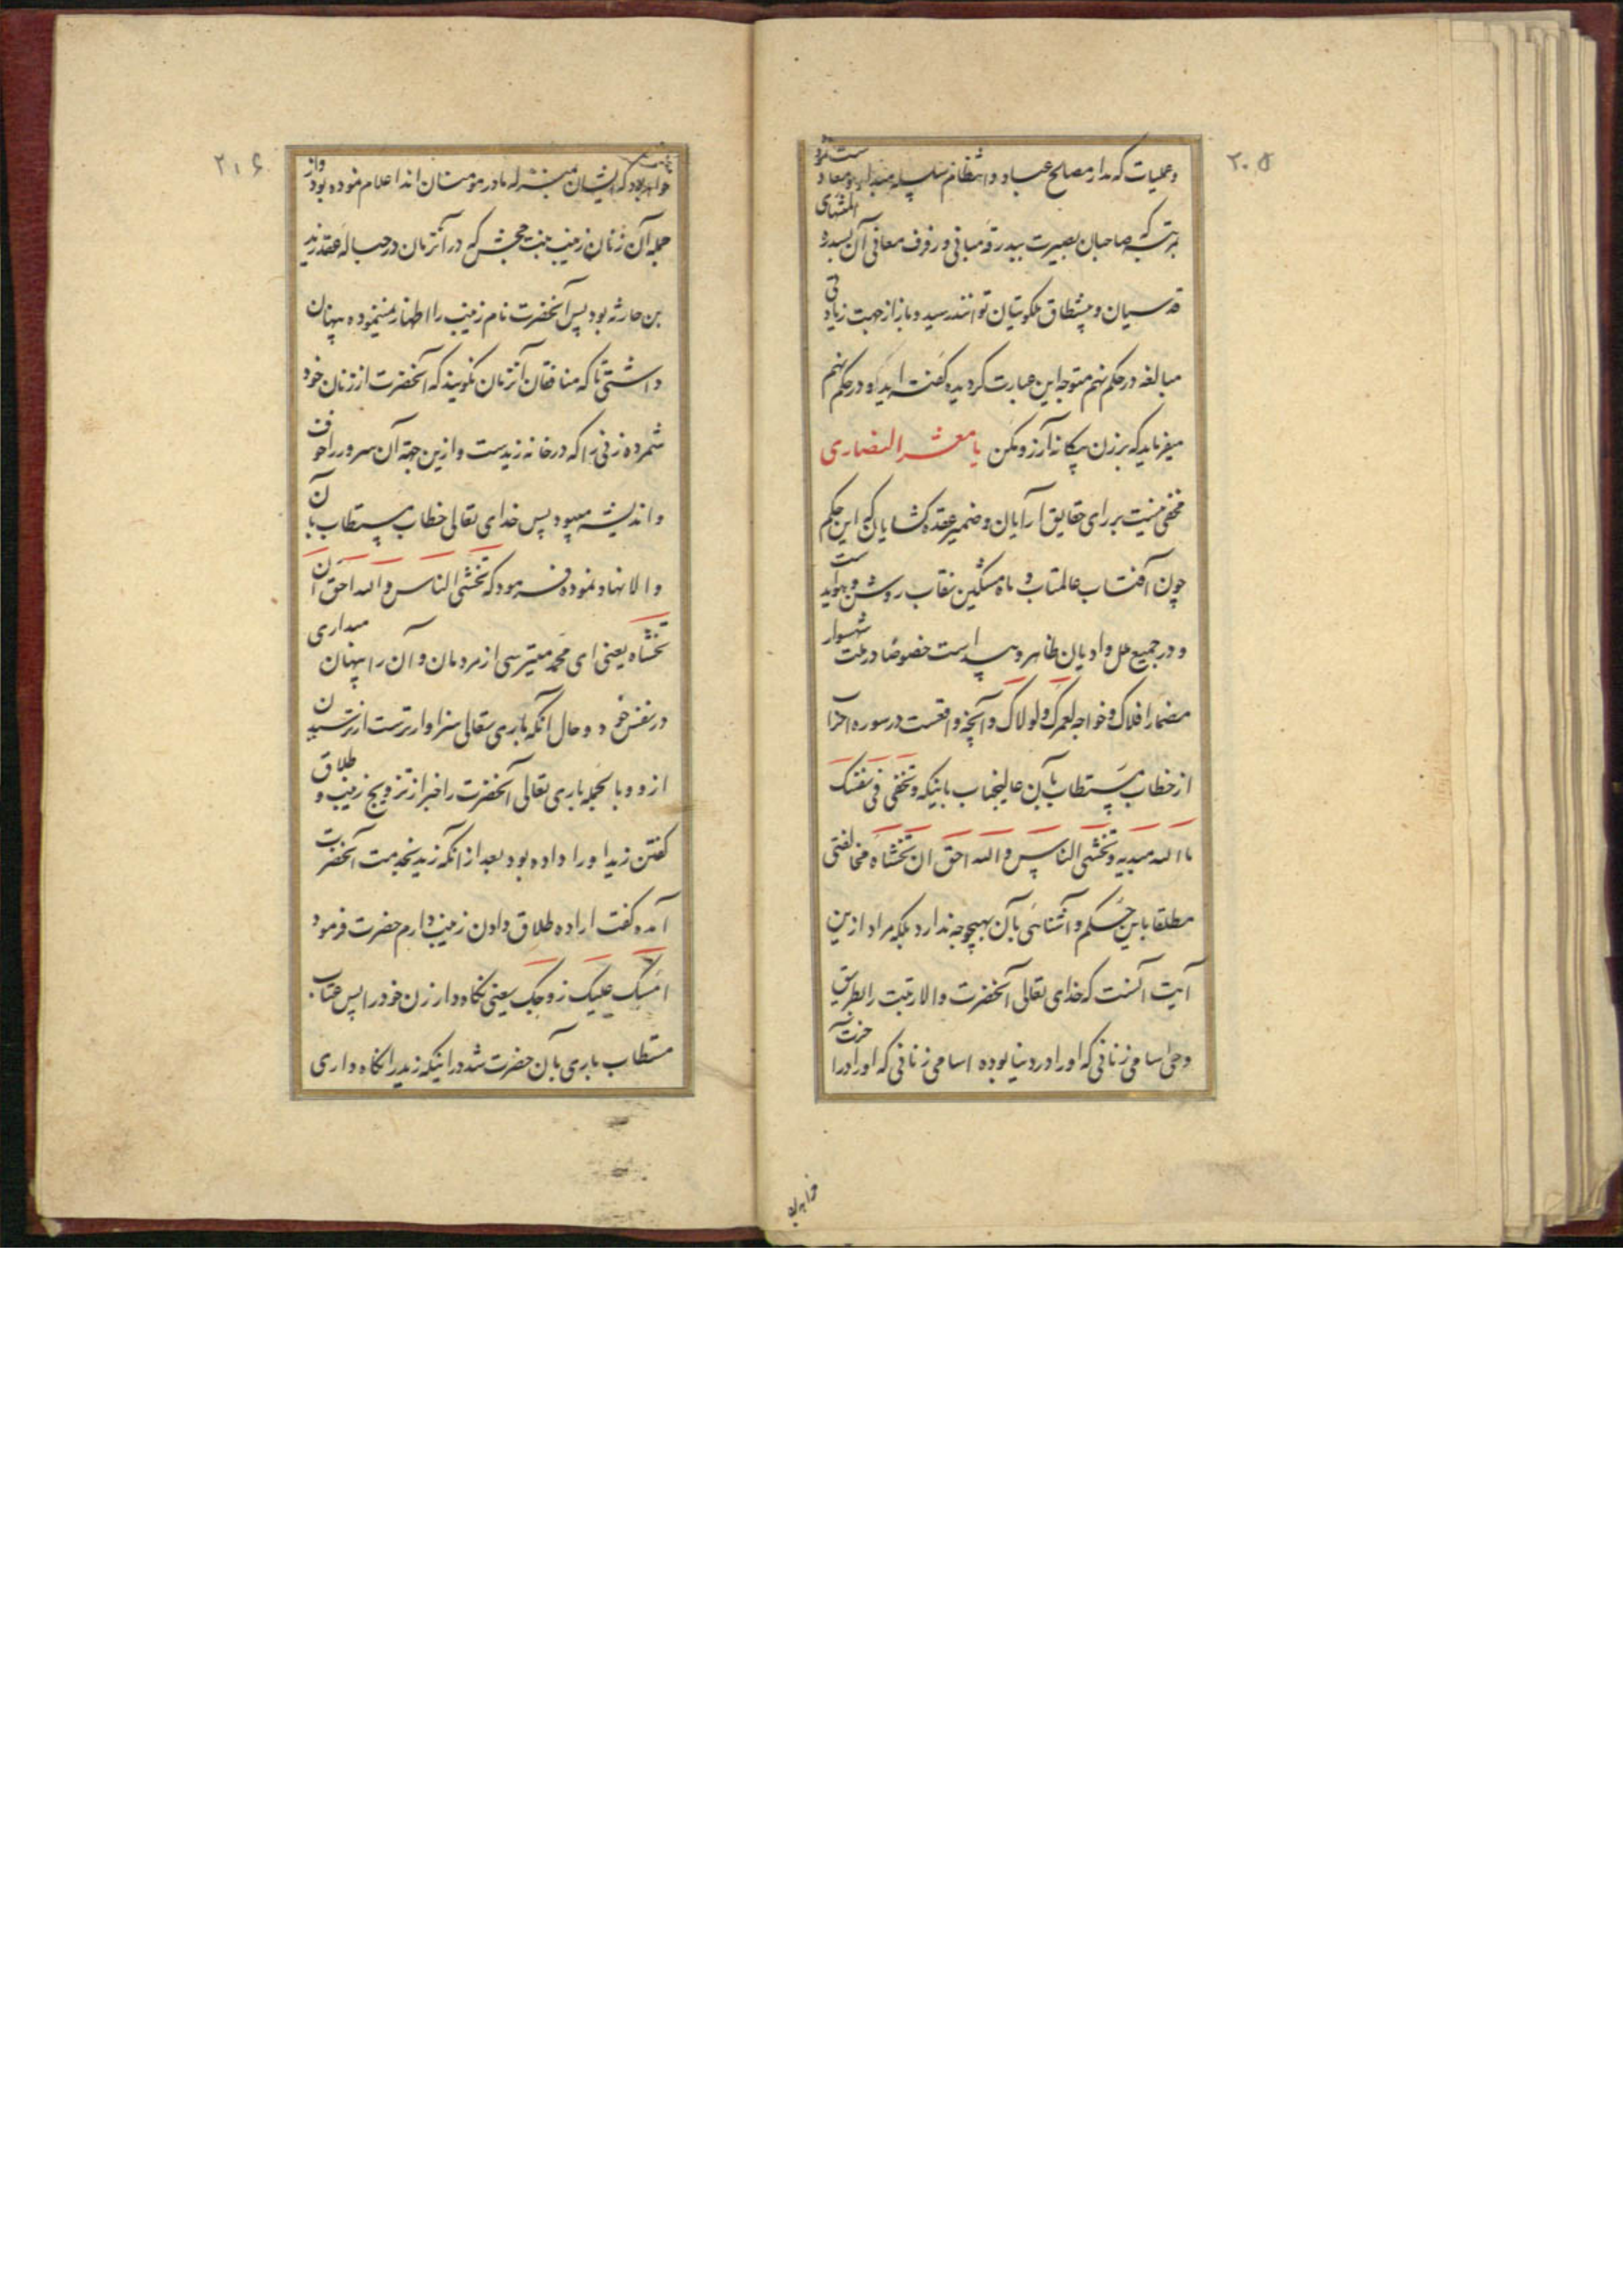 ۲۰۵
وعملیات که مدار مصالح عباد و انتظام سلسله مبدا و معاد
بمرتبه که صاحبان بصیرت ببدرقه مبانی و رفرف معانی آن بسدره المنتهای
قدسیان و پیشطاق ملکوتیان توانند رسید و باز از جهت زیادتی
مبالغه در حکم نهم متوجه این عبارت کردیده کفته اید و در حکم نهم
میفرماید که بر زن بیکانه آرزو مکن یا معشر النصاری
مخفی نیست بر رای حقایق آرایان و ضمیر عقده کشایان که این حکم
چون آفتاب عالمتاب و ماه مشکین نقاب روشن و هویداست
و در جمیع ملل و ادیان ظاهر و پیداست خصوصا در ملت شهسوار
مضمار افلاک و خواجه لعمرک و لولاک و آنچه واقعست در سوره احزاب
از خطاب مستطاب بآن عالیجناب باینکه وتخفی فی نفسک
ما الله مبدیه وتخشی الناس والله احق ان تخشاه مخالفتی
مطلقا باین حکم و آشنائی بآن بهیچوجه ندارد بلکه مراد ازین
آیت آنست که خدای تعالی آنحضرت والا رتبت را بطریق
وحی اسامی زنانی که او را در دنیا بوده اسامی زنانی که او را در آخرت
خواهد بود
۲۰۶
خواهد بود که ایشان بمنزله مادر مومنان اند اعلام نموده بود و از
جمله آن زنان زینب بنت جحش که در آنزمان در حباله عقد زید
بن حارثه بود پس آنحضرت نام زینب را اظهار نمینموده پنهان
داشتی تا که منافقان آنزمان نکویند که آنحضرت از زنان خود
شمرده زنی را که در خانه زیدست و ازین جهة آن سرور را خوف
و اندیشه میبود پس خدای تعالی خطاب مستطاب بآن
والا نهاد نموده فرمود که تخشی الناس والله احق ان
تخشاه یعنی ای محمد میترسی از مردمان و آن را پنهان میداری
در نفس خود و حال آنکه باری تعالی سزاوارترست از ترسیدن
ازو و بالجمله باری تعالی آنحضرت را خبر از تزویج زینب و طلاق
کفتن زید او را داده بود بعد از انکه زید بخدمت آنحضرت
آمده کفت اراده طلاق دادن زینب دارم حضرت فرمود
لا امسک علیک زوجک یعنی نکاه دار زن خود را پس عتاب
مستطاب باری بآن حضرت شد در اینکه زید را نکاه داری